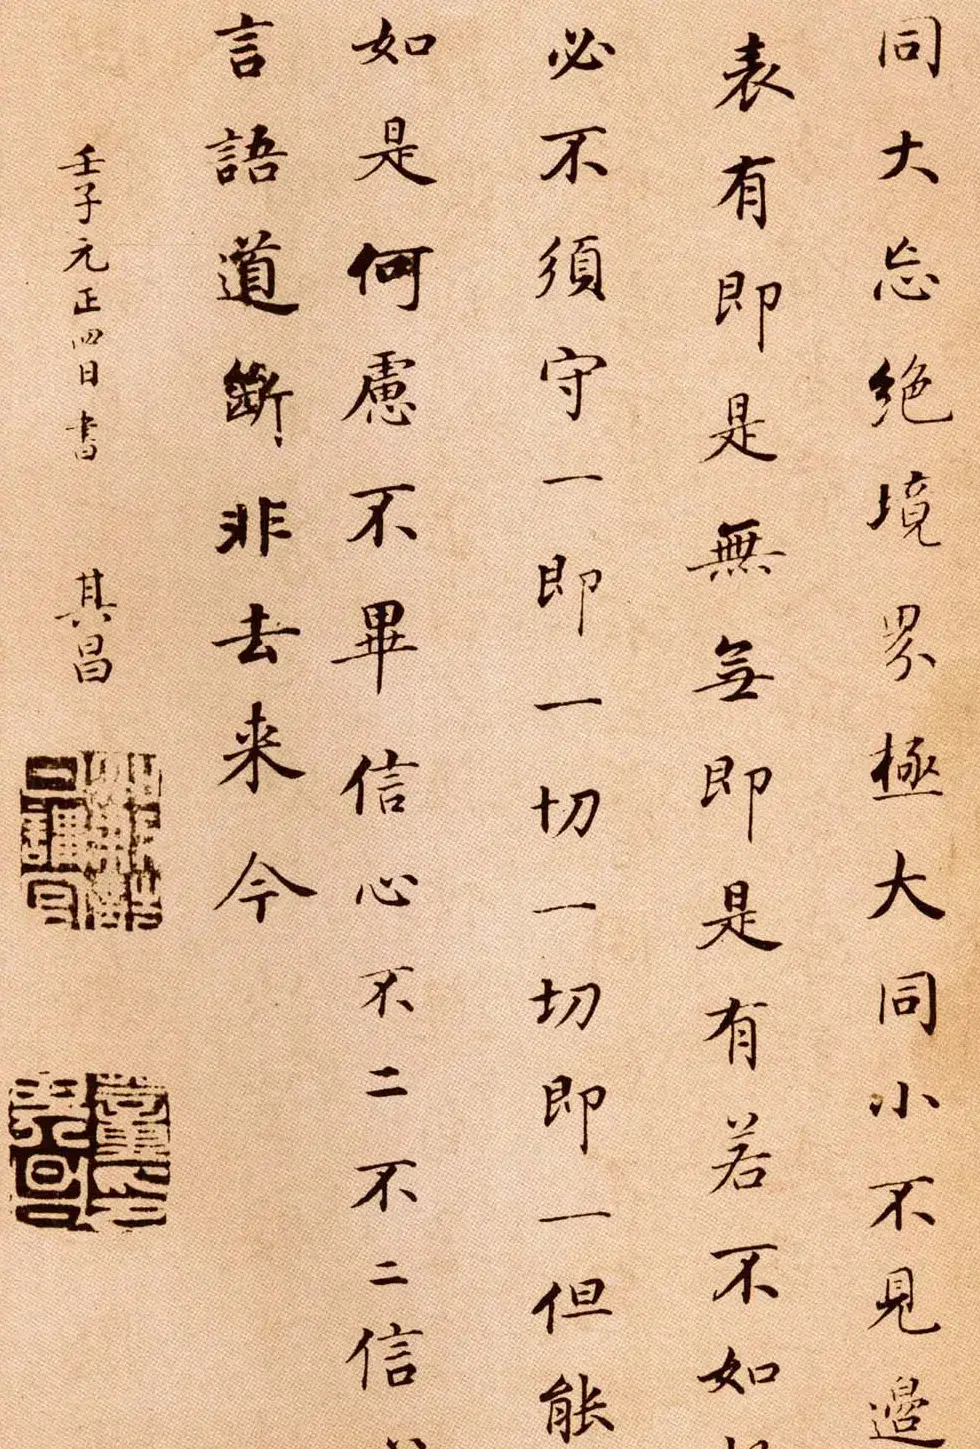 同大忘絶境界極大同小不見邊
表有即是無無即是有若不如
必不須守一即一切一切即一但能
如是何慮不畢信心不二不二信
言語道斷非去来今
壬子元正四日書 其昌